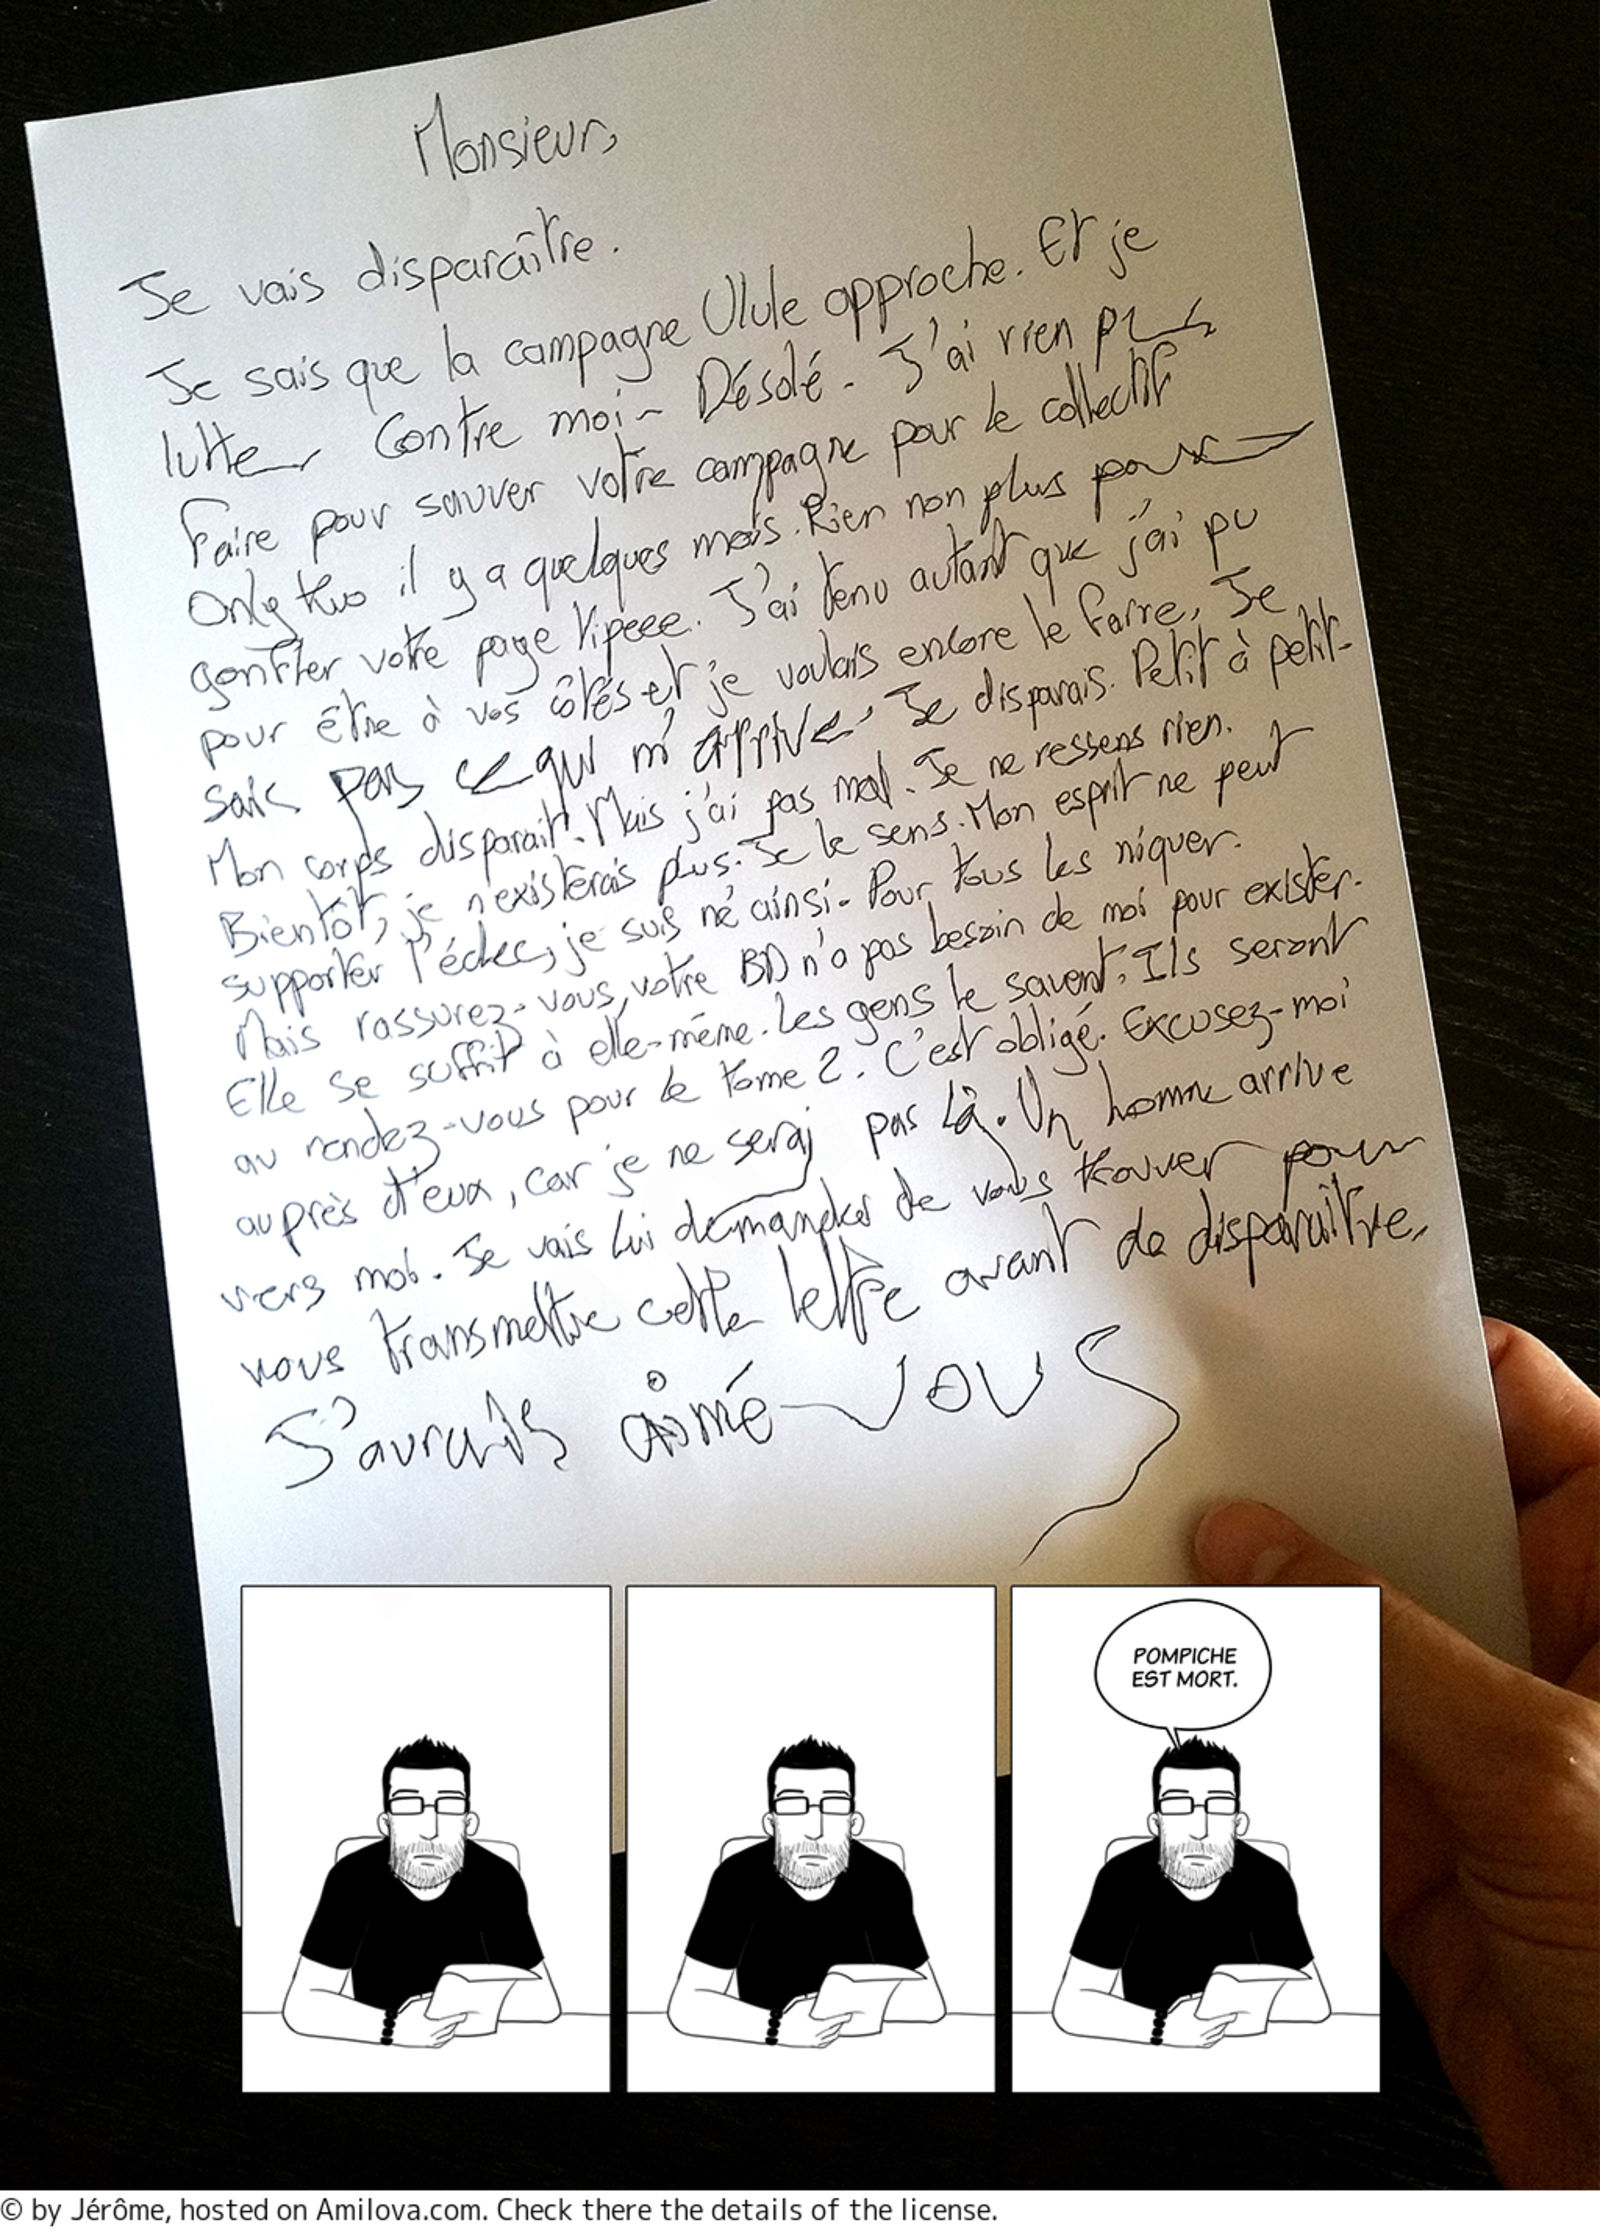 Monsieur,
Je vais disparaître.
Je sais que la campagne Ulule approche. Et je
lutte Contre moi - Désolé - J'ai rien pu
Faire pour sauver votre campagne pour le collectif
Only two il y a quelques mois. Rien non plus pour
gonfler votre page Tipeee. J'ai tenu autant que j'ai pu
pour être à vos côtés et je voulais encore le faire, Je
sais pas ce qui m'arrive. Je disparais. Petit à petit -
Mon corps disparait. Mais j'ai pas mal. Je ne ressens rien.
Bientôt, je n'existerais plus. Je le sens. Mon esprit ne peut
supporter l'échec, je suis né ainsi - Pour tous les niquer.
Mais rassurez-vous, votre BD n'a pas besoin de moi pour exister.
Elle se suffit à elle-même. Les gens le savent, Ils seront
au rendez-vous pour le tome 2. C'est obligé. Excusez-moi
auprès d'eux, car je ne serai pas là. Un homme arrive
vers moi. Je vais lui demander de vous trouver pour
vous transmettre cette lettre avant de disparaître.
J'aurais aimé vous
POMPICHE
EST MORT.
© by Jérôme, hosted on Amilova.com. Check there the details of the license.